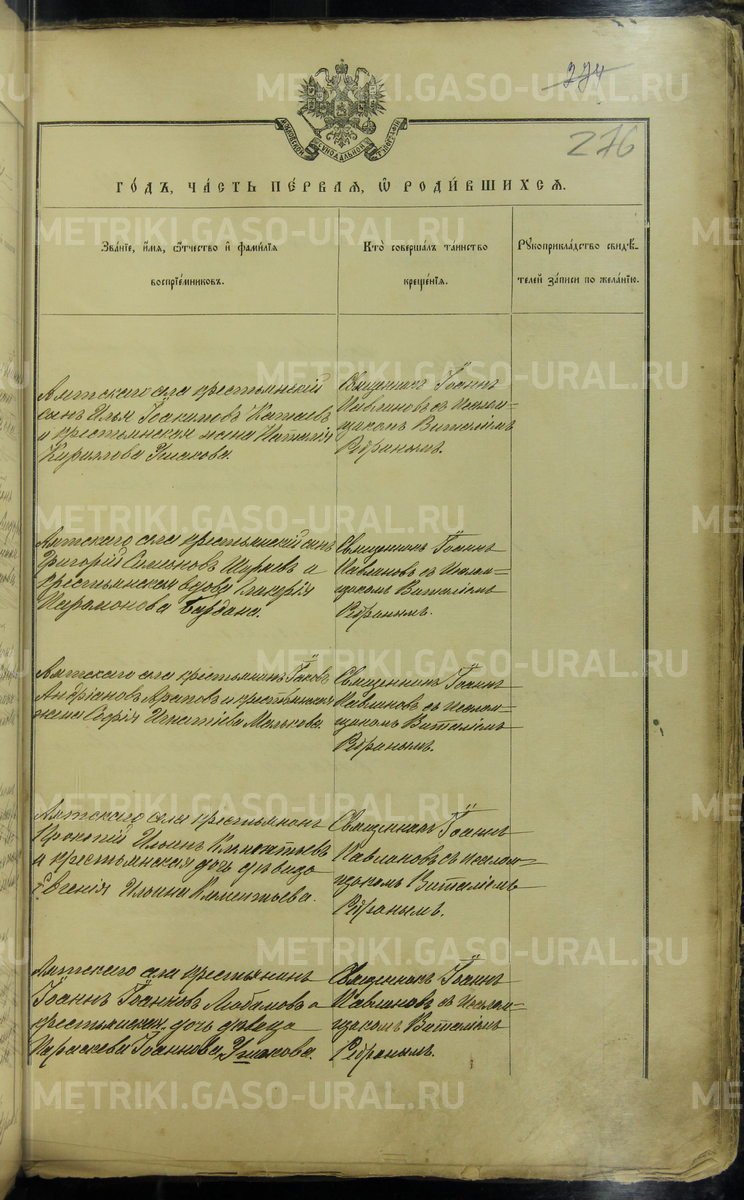 274
276
METRIKI.GASO-URAL.RU
ГО́ДЪ, ЧА́СТЬ ПЕ́РВАѦ, Ѡ҆ РОДИ́ВШИХСѦ.
Зва́нїе, и҆́мѧ, ѻ҆́тчество и҆ фами́лїѧ
воспрїе́мниковъ.
Кто̀ соверша́лъ та́инство
креще́нїѧ.
Рꙋкоприкла́дство свидѣ́-
телей за́писи по жела́нїю.
Аятскаго села крестьянскій
сынъ Илья Іоакимовъ Катаевъ
и крестьянская жена Наталія
Кириллова Ушакова.
Священникъ Іоаннъ
Павлиновъ съ псалом-
щикомъ Виталіемъ
Ребринымъ.
Аятскаго села крестьянскій сынъ
Григорій Симоновъ и
крестьянская вдова Гликерія
Парамонова
Священникъ Іоаннъ
Павлиновъ съ псалом-
щикомъ Виталіемъ
Ребринымъ.
Аятскаго села крестьянинъ Іаковъ
Андріановъ Араповъ и крестьянская
жена Софія Игнатіева Малькова.
Священникъ Іоаннъ
Павлиновъ съ псалом-
щикомъ Виталіемъ
Ребринымъ.
Аятскаго села крестьянинъ
Прокопій Ильинъ Клементьевъ
и крестьянская дочь дѣвица
Евгенія Ильина Клементьева.
Священникъ Іоаннъ
Павлиновъ съ псалом-
щикомъ Виталіемъ
Ребринымъ.
Аятскаго села крестьянинъ
Іоаннъ Іоанновъ и
крестьянская дочь дѣвица
Параскева Іоаннова Ушакова.
Священникъ Іоаннъ
Павлиновъ съ псалом-
щикомъ Виталіемъ
Ребринымъ.